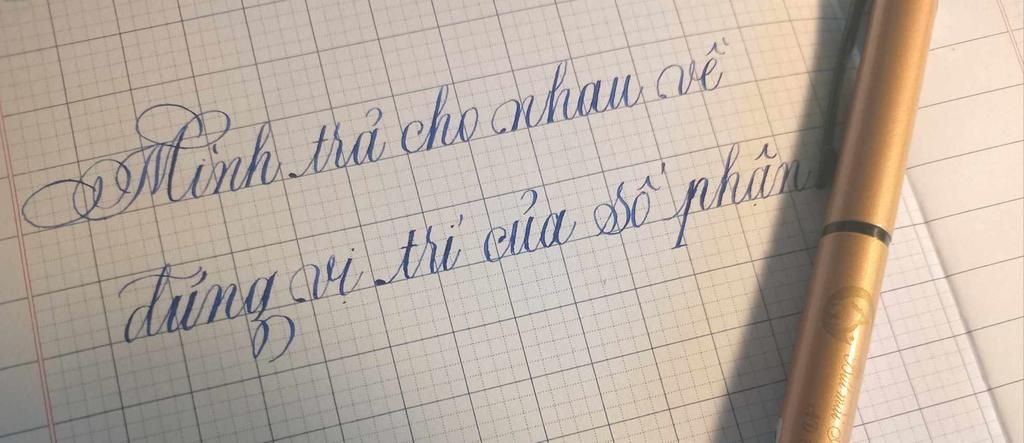 Mình trả cho nhau về
đúng vị trí của số phận